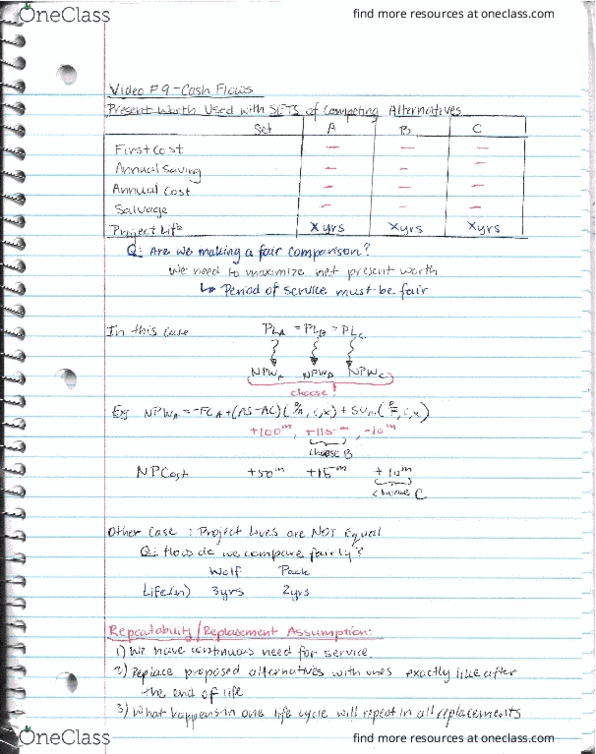 OneClass
find more resources at oneclass.com
Video #9 - Cash Flows
Present Worth Used with SETS of Competing Alternatives
Set A B C
First Cost - - -
Annual Saving - - -
Annual Cost - - -
Salvage - - -
Project Life X yrs X yrs X yrs
Q: Are we making a fair comparison?
We need to maximize net present worth
↳ Period of service must be fair
In this case PL_A = PL_B = PL_C
NPW_A NPW_B NPW_C
choose!
Eg NPW_A = -FC_A + (AS-AC)(P/A, i, x) + SV_A(P/F, i, x)
+100^m, +115^m, -10^m
choose B
NPCost +50^m +15^m +10^m
choose C
Other Case: Project Lives are NOT Equal
Q: How do we compare fairly?
Wolf Pack
Life(n) 3yrs 2yrs
Repeatability/Replacement Assumption:
1) We have continuous need for service
2) Replace proposed alternatives with ones exactly like after
the end of life
3) What happens in one life cycle will repeat in all replacements
OneClass
find more resources at oneclass.com